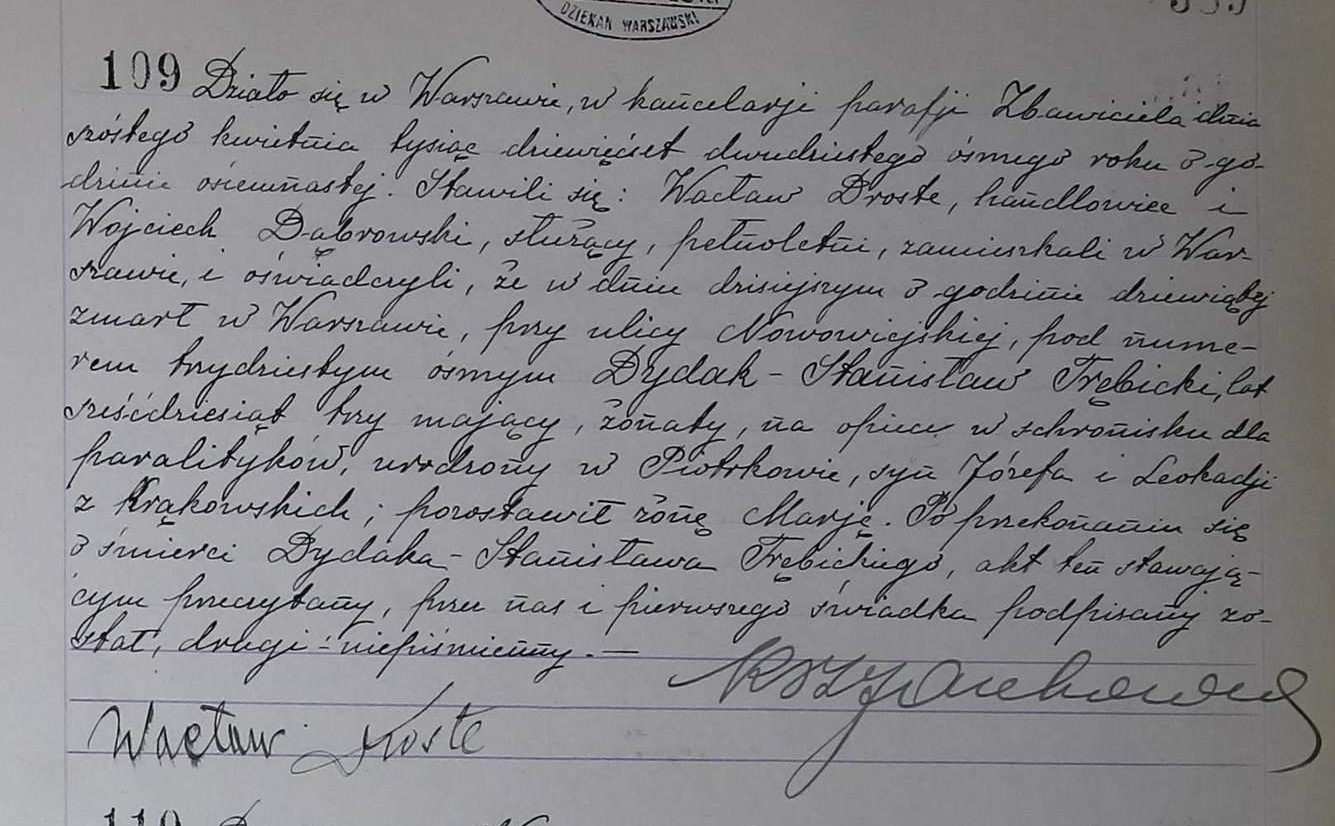 DZIEKAN WARSZAWSKI
109 Działo się w Warszawie, w kancelarji parafji Zbawiciela dnia
szóstego kwietnia tysiąc dziewięćset dwudziestego ósmego roku o go-
dzinie osiemnastej. Stawili się: Wacław Droste, handlowiec i
Wojciech Dąbrowski, służący, pełnoletni, zamieszkali w War-
szawie, i oświadczyli, że w dniu dzisiejszym o godzinie dziewiątej
zmarł w Warszawie, przy ulicy Nowowiejskiej, pod nume-
rem trzydziestym ósmym Dydak-Stanisław Trębicki, lat
sześćdziesiąt trzy mający, żonaty, na opiece w schronisku dla
paralityków, urodzony w Piotrkowie, syn Józefa i Leokadji
z Krąkowskich; pozostawił żonę Marję. Po przekonaniu się
o śmierci Dydaka-Stanisława Trębickiego, akt ten stawają-
cym przeczytany, przez nas i pierwszego świadka podpisany zo-
stał, drugi - niepiśmienny. —
Wacław Droste
110